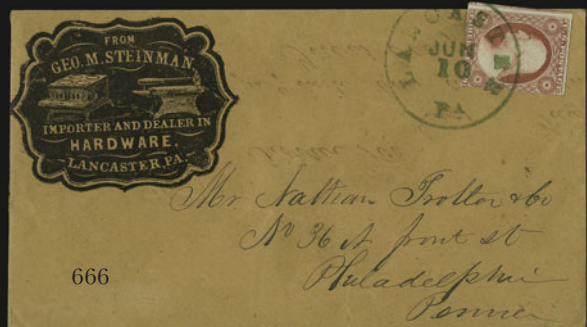 FROM
GEO. M. STEINMAN,
IMPORTER AND DEALER IN
HARDWARE,
LANCASTER, PA.
LANCASTER
JUN
10
PA
Mr. Nathan Trotter & Co
No 36 N front st
Philadelphia
Penna
666